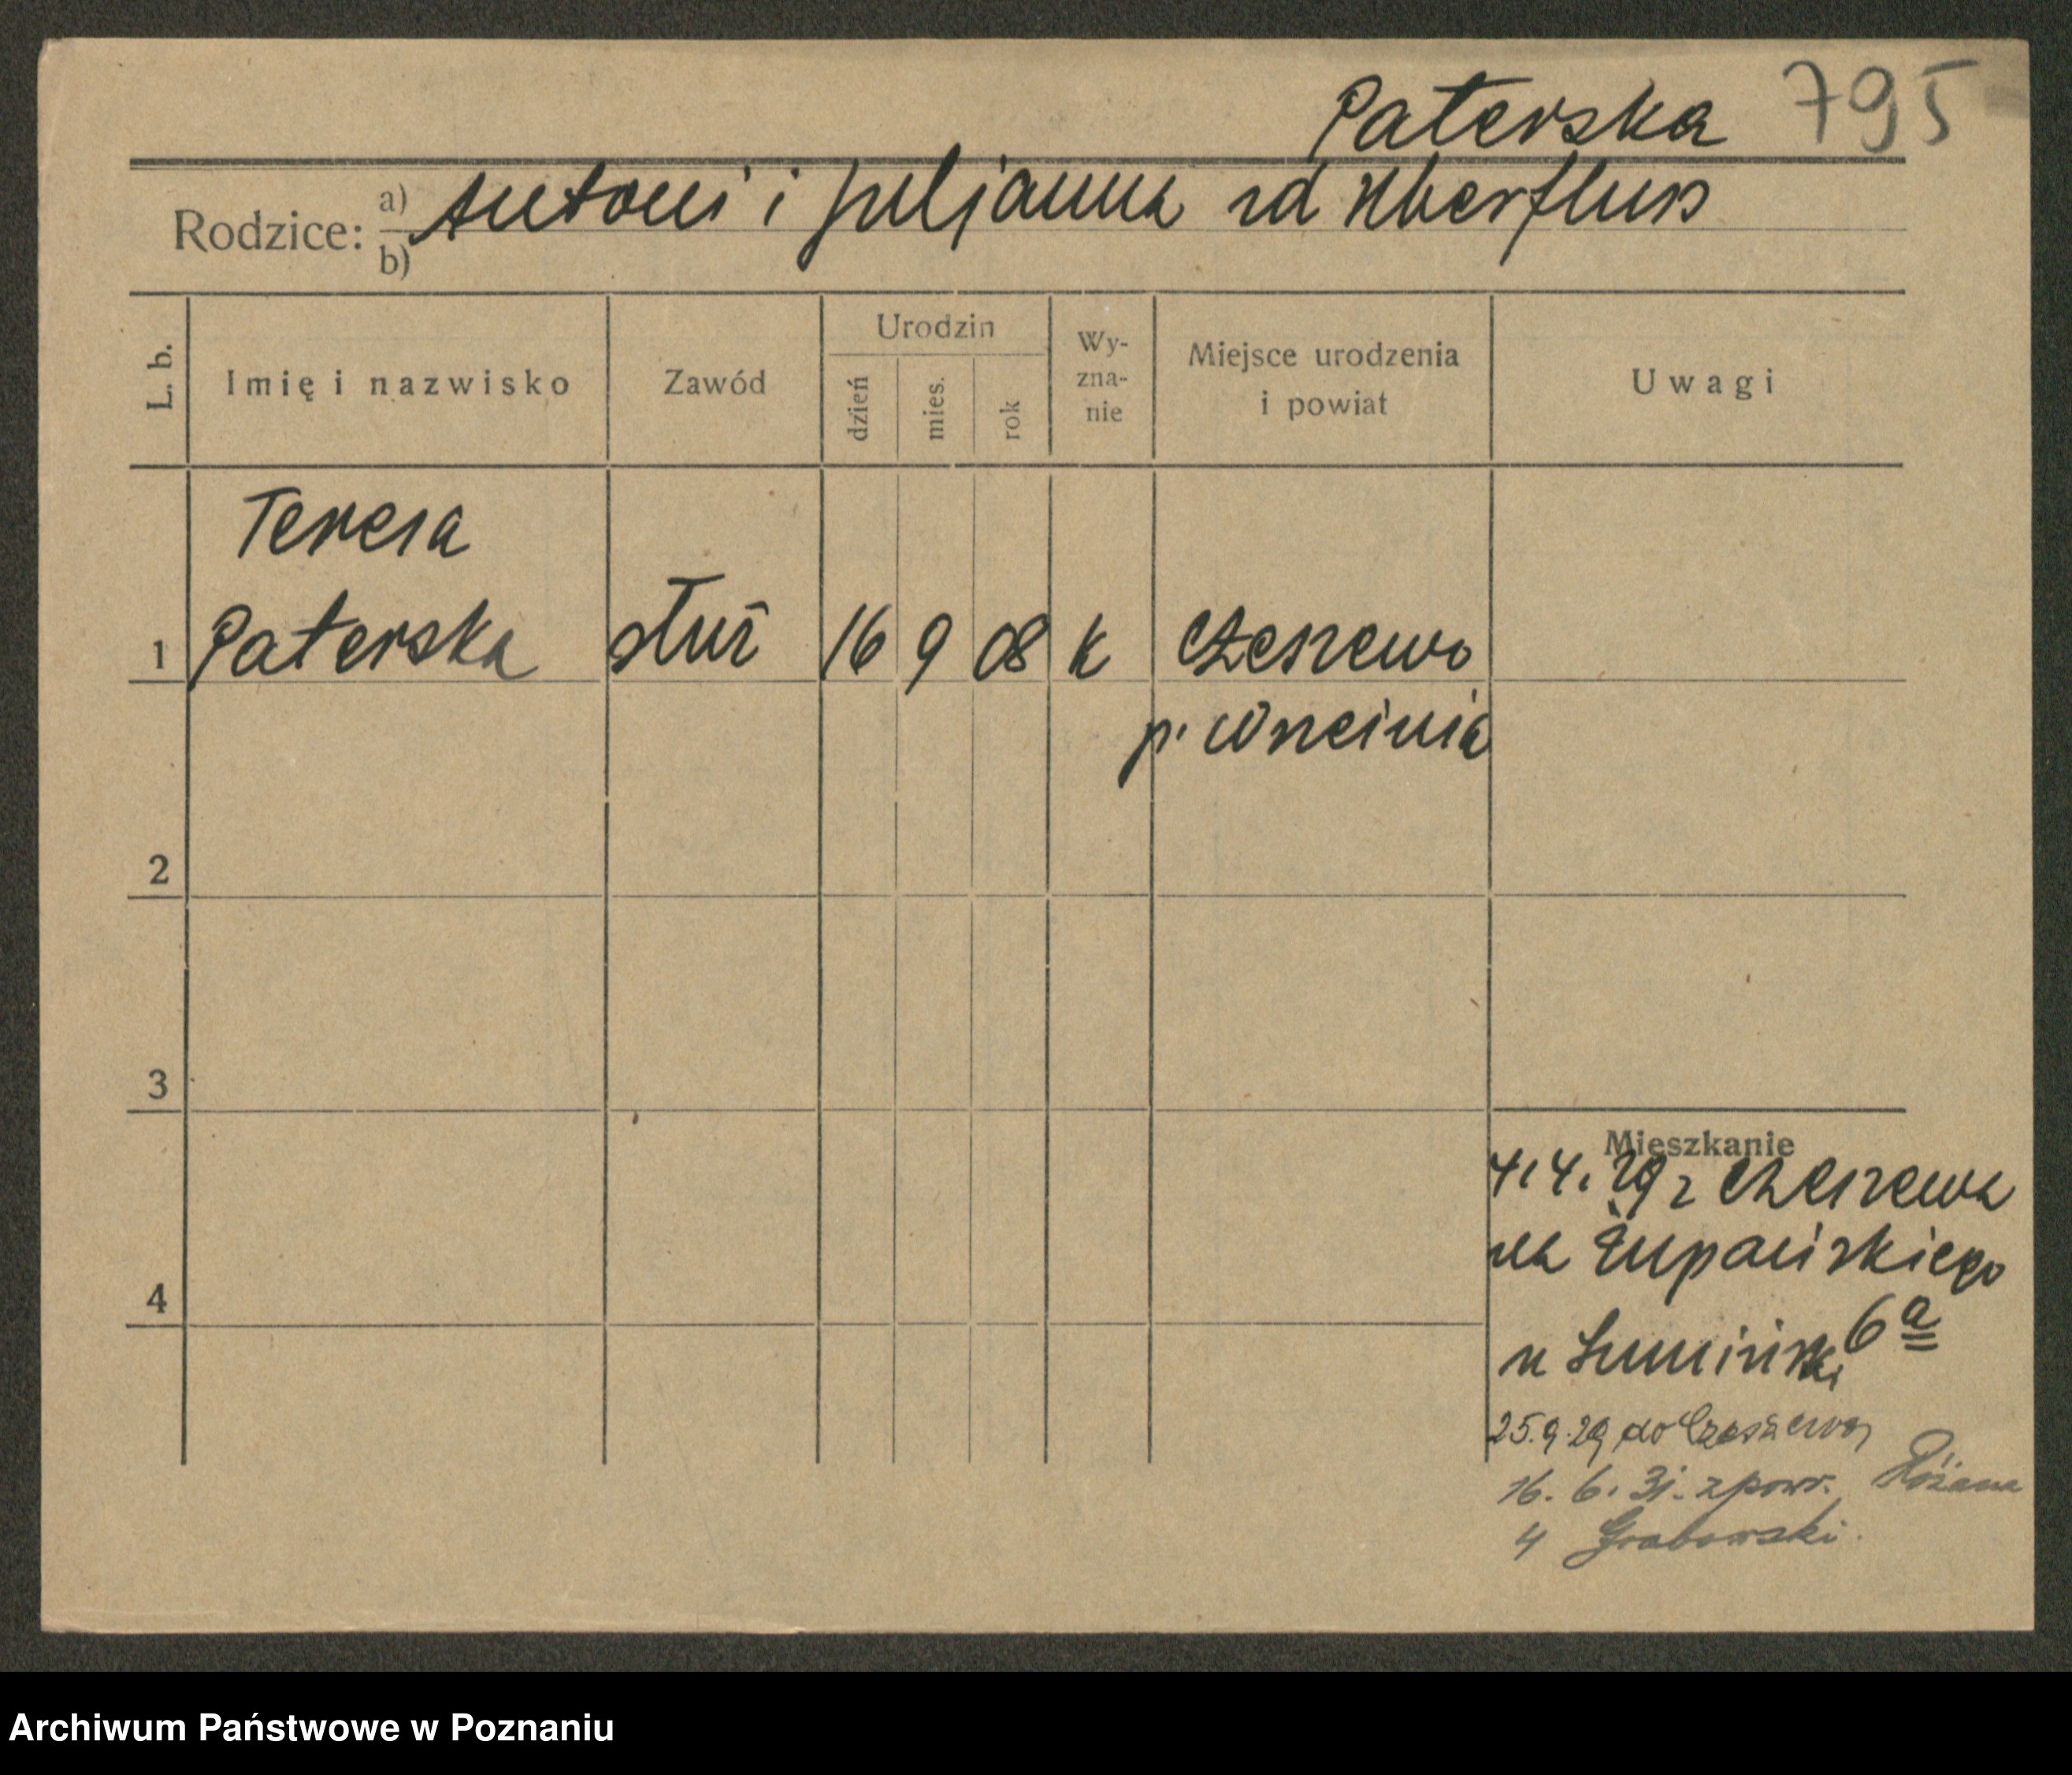 Paterska 795
Rodzice: a) Antoni i Juljanna zd Uberfluss
b)
L. b.
Imię i nazwisko
Zawód
Urodzin
dzień
mies.
rok
Wy-
zna-
nie
Miejsce urodzenia
i powiat
Uwagi
Teresa
1 Paterska służ 16 9 08 k Czeszewo
p. Września
2
3
4
Mieszkanie
4.4.29 z Czeszewa
na Żupańskiego
6a
u
25.9.29 do Czeszewa
16. 6. 31. z pow. Różana
4 Grabowski.
Archiwum Państwowe w Poznaniu